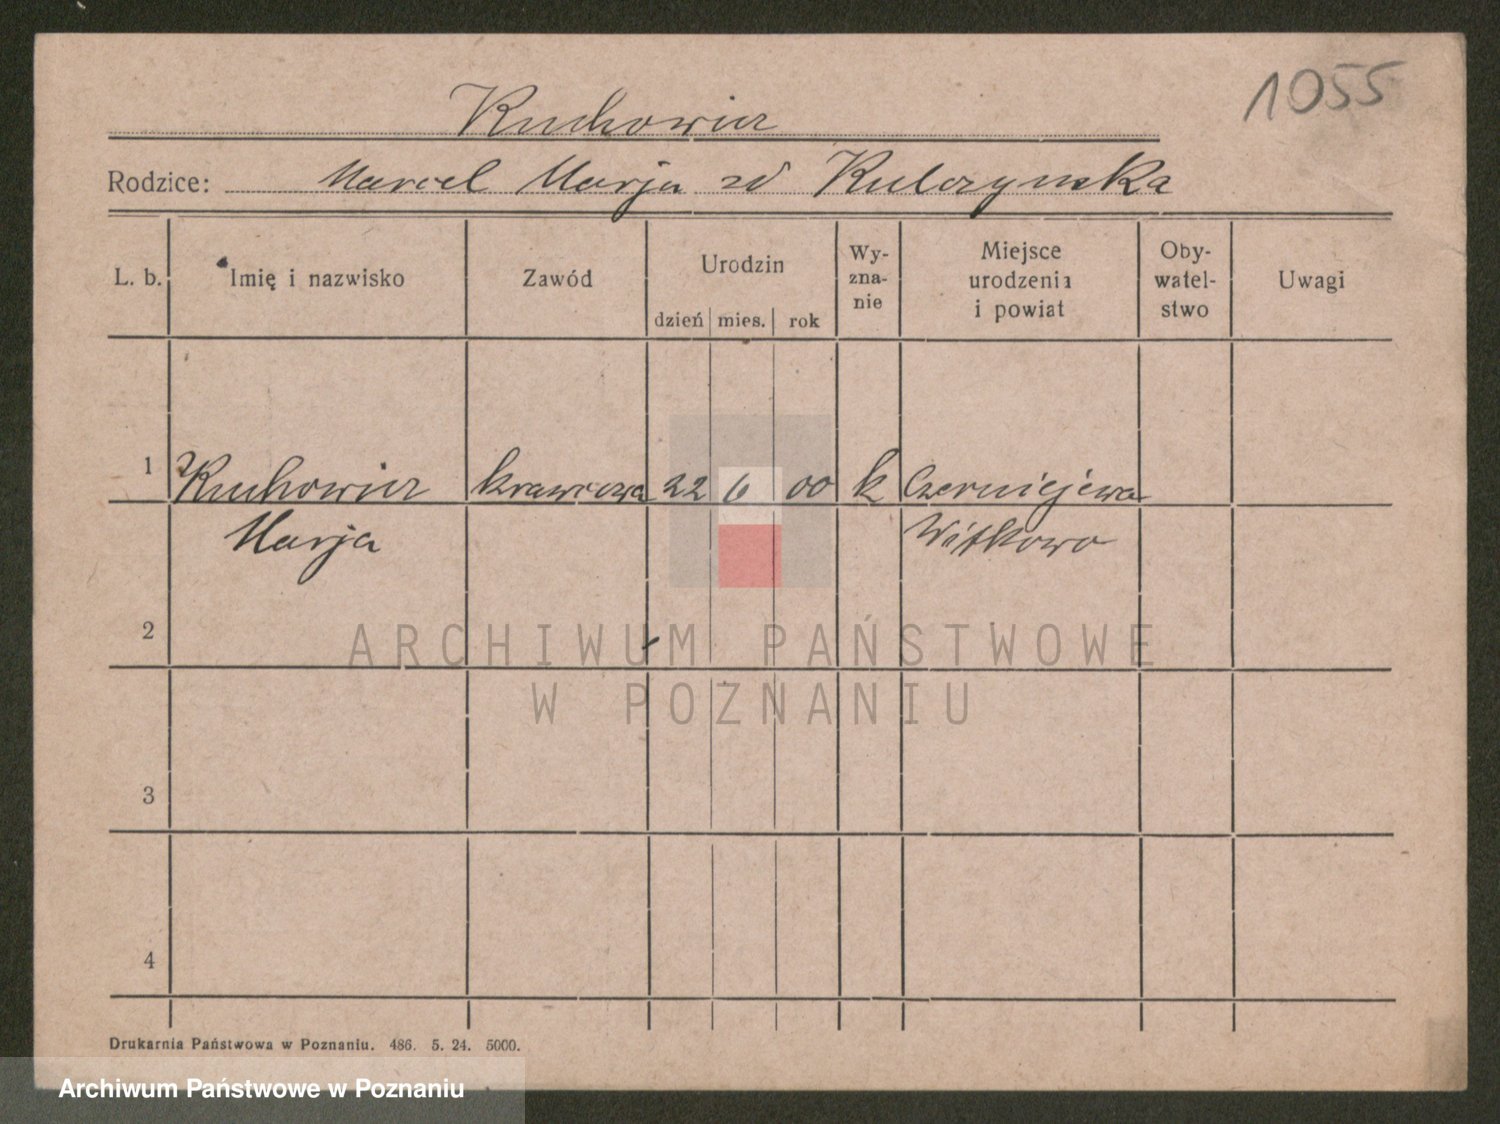 1055
Kuchowicz
Rodzice: Marcel Marja zd Kulczynska
L. b. Imię i nazwisko Zawód Urodzin dzień mies. rok Wy-zna-nie Miejsce urodzenia i powiat Oby-watel-stwo Uwagi
1 Kuchowicz krawcowa 22 6 00 k Czerniejewo
Marja Witkowo
2
ARCHIWUM PAŃSTWOWE
W POZNANIU
3
4
Drukarnia Państwowa w Poznaniu. 486. 5. 24. 5000.
Archiwum Państwowe w Poznaniu